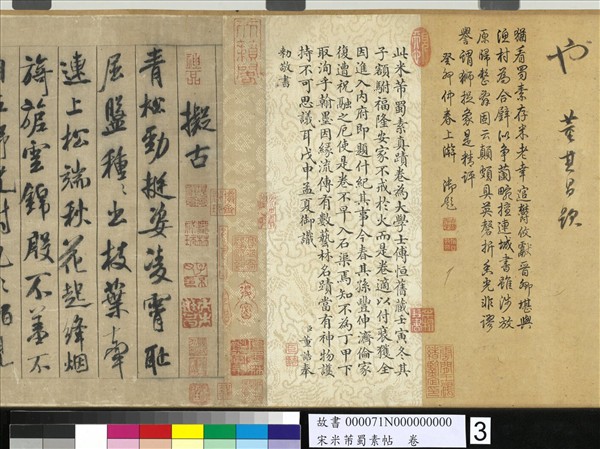 也
董其昌題
猶看蜀素存米老幸逭鬱攸獻晉卿堪與
漁村為合璧似爭蘭畹擅連城書雖涉放
原歸整畧因云顛頗具英聲折衷光非謬
譽謂獅捉象是精評
癸卯仲春上澣 御題
此米芾蜀素真蹟卷為大學士傅恒舊藏壬寅冬其
子額駙福隆安家不戒於火而是卷適以付裝獲全
因進入內府即題什紀其事今春其孫豐紳濟倫家
復遭祝融之厄使是卷不早入石渠焉知不為丁甲下
取洵乎翰墨因緣流傳有數藝林名蹟當有神物護
持不可思議耳戊申孟夏御識 臣董誥奉
勅敬書
擬古
青松勁挺姿凌霄恥
屈盤種種出枝葉牽
連上松端秋花起絳烟
旖旎雲錦殷不羞不
故書 000071N000000000
宋米芾蜀素帖 卷
3